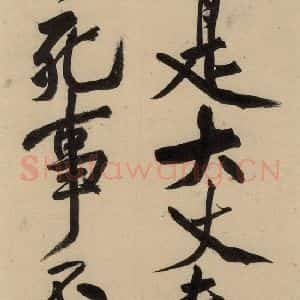 是大丈夫
死事不
Shufawang.CN